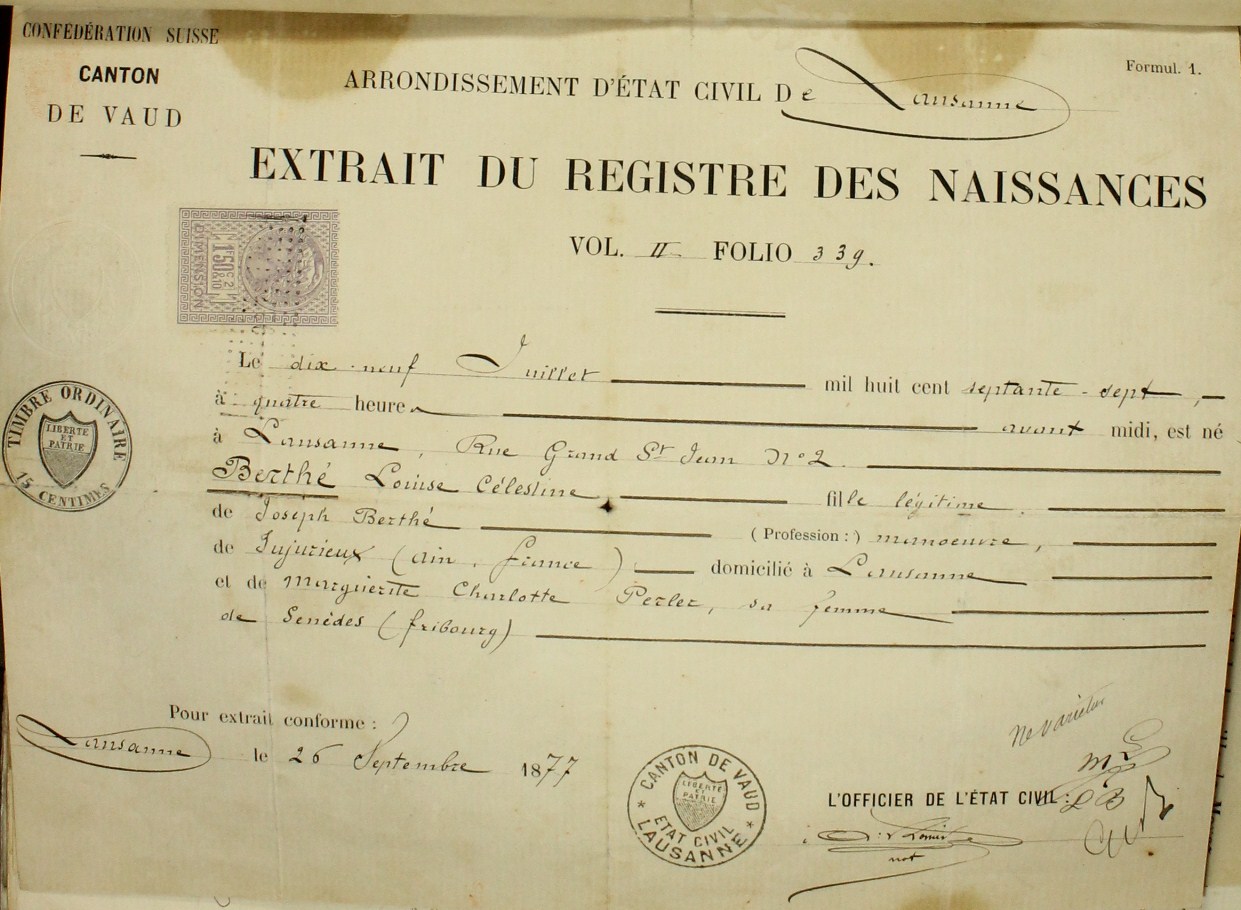 CONFÉDÉRATION SUISSE
CANTON
DE VAUD
Formul. 1.
ARRONDISSEMENT D'ÉTAT CIVIL De Lausanne
EXTRAIT DU REGISTRE DES NAISSANCES
VOL. II FOLIO 339.
1F50C 2/10
DIMENSION
TIMBRE ORDINAIRE
LIBERTE
ET
PATRIE
15 CENTIMES
Le dix-neuf Juillet mil huit cent septante-sept,
à quatre heures avant midi, est né
à Lausanne, Rue Grand St Jean No 2.
Berthé Louise Célestine fille légitime
de Joseph Berthé (Profession:) manoeuvre,
de Jujurieux (ain, france) domicilié à Lausanne
et de Marguerite Charlotte Perler, sa femme
de Senèdes (fribourg)
Pour extrait conforme :
Lausanne le 26 Septembre 1877
CANTON DE VAUD
LIBERTE
ET
PATRIE
ETAT CIVIL
LAUSANNE
Ne varietur
L'OFFICIER DE L'ÉTAT CIVIL:
not